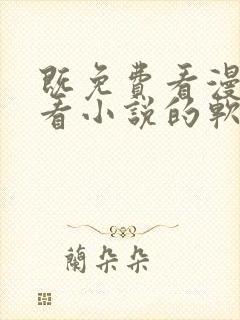 既免費看漫
看小說的軟
蘭朵朵